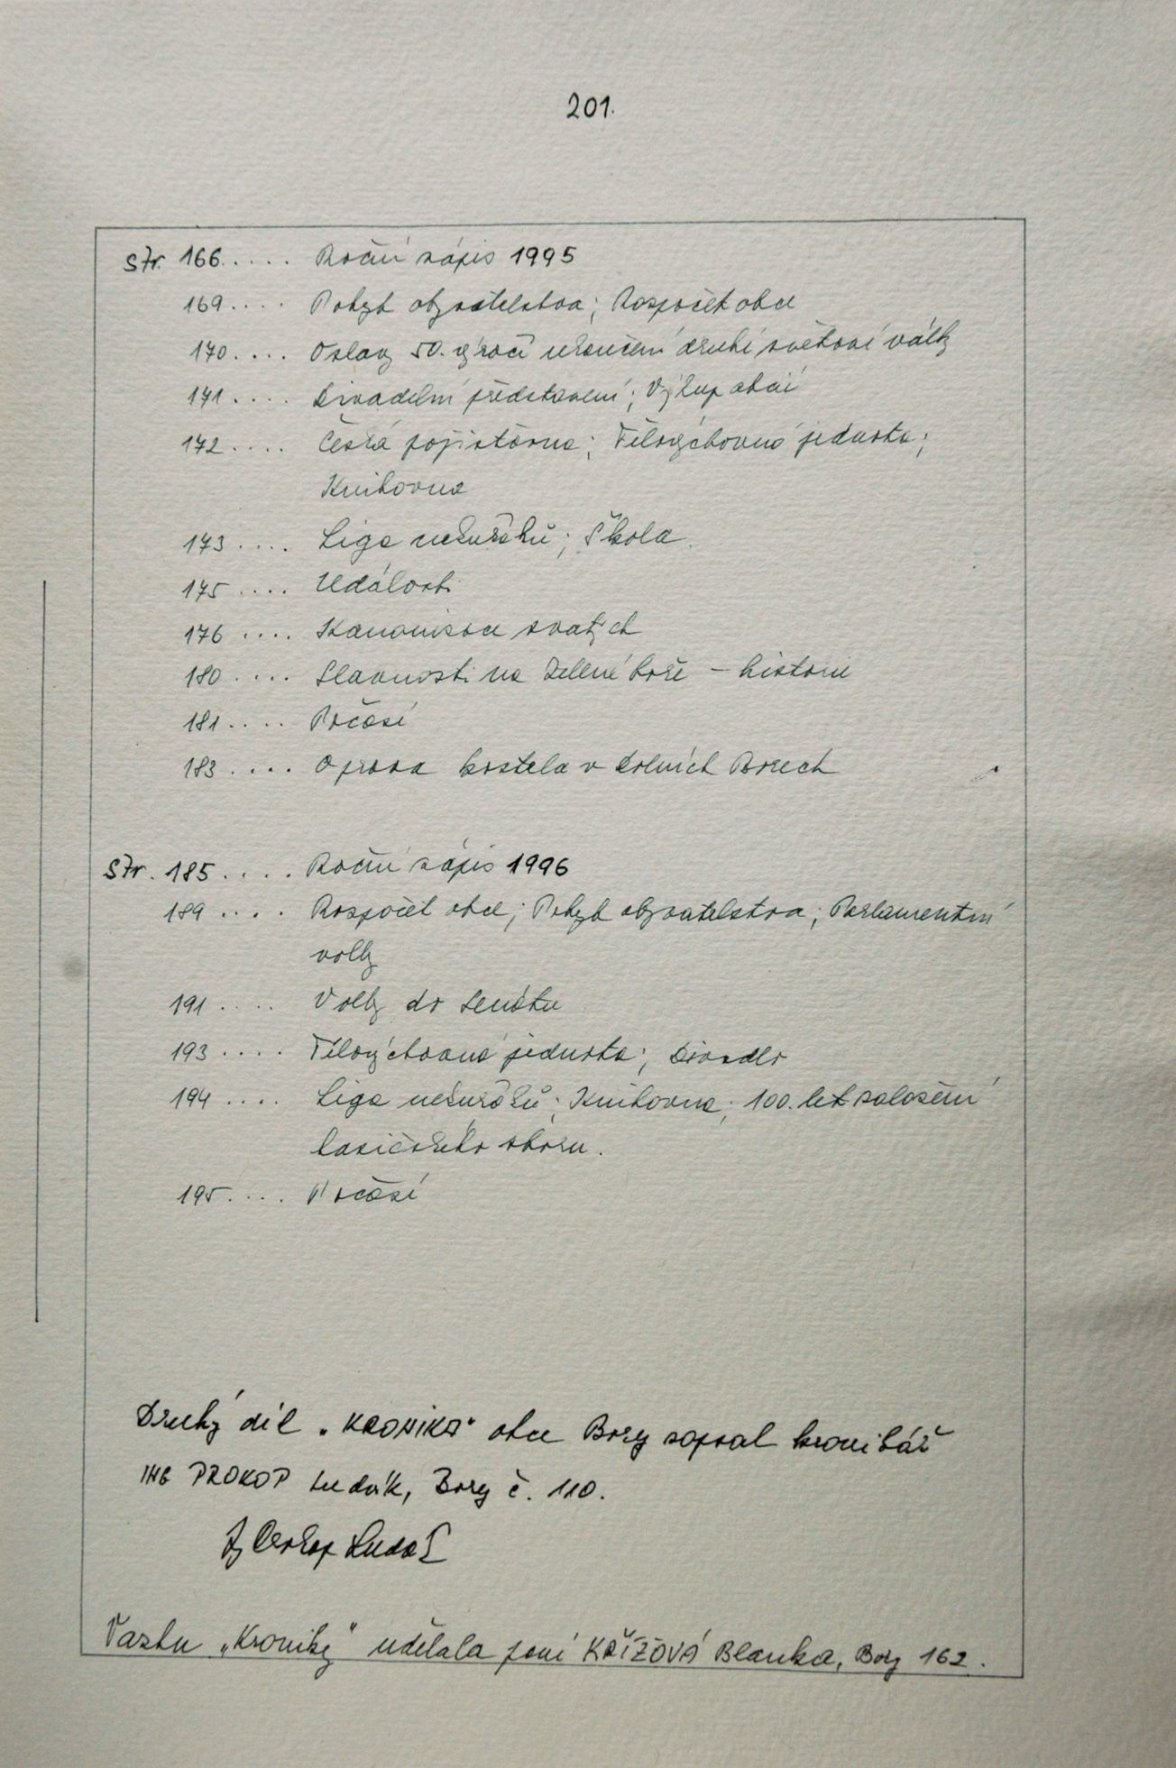 201.
Str. 166..... Roční zápis 1995
169.... Pohyb obyvatelstva; Rozpočet obce
170.... Oslavy 50. výročí ukončení druhé světové války
171.... Divadelní představení; Výkup obilí
172.... Česká pojišťovna; Tělovýchovná jednota;
Knihovna
173.... Liga nekuřáků; Škola.
175.... Události
176.... Kanonizace svatých
180.... Slavnosti na Zelené hoře - historie
181.... Počasí
183.... Oprava kostela v Dolních Borech
Str. 185.... Roční zápis 1996
189.... Rozpočet obce; Pohyb obyvatelstva; Parlamentní
volby
191.... Volby do Senátu
193.... Tělovýchovná jednota; Divadlo
194.... Liga nekuřáků; Knihovna; 100. let založení
hasičského sboru.
195.... Počasí
Druhý díl „KRONIKA" obce Bory sepsal kronikář
ING PROKOP Luděk, Bory č. 110.
Prokop Luděk
Vazbu „Kroniky" udělala paní KŘÍŽOVÁ Blanka, Bory 162.